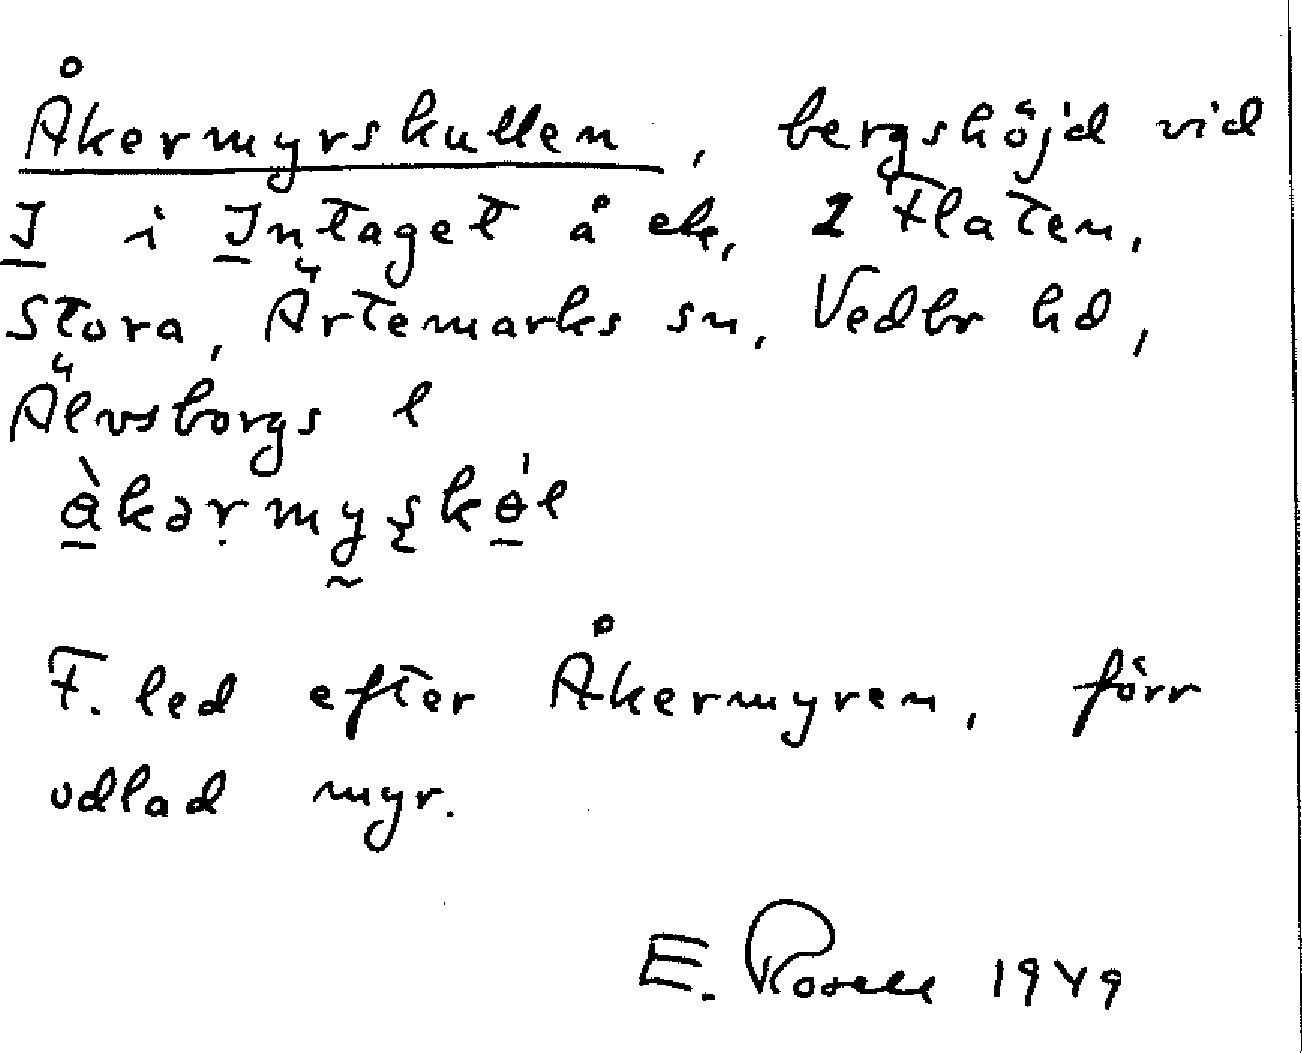 Åkermyrskullen, bergshöjd vid
I i Intaget å ek, 2 Flaten,
Stora, Ärtemarks sn, Vedbr hd,
Älvsborgs l
F. led efter Åkermyren, förr
odlad myr.
E. Rosell 1949